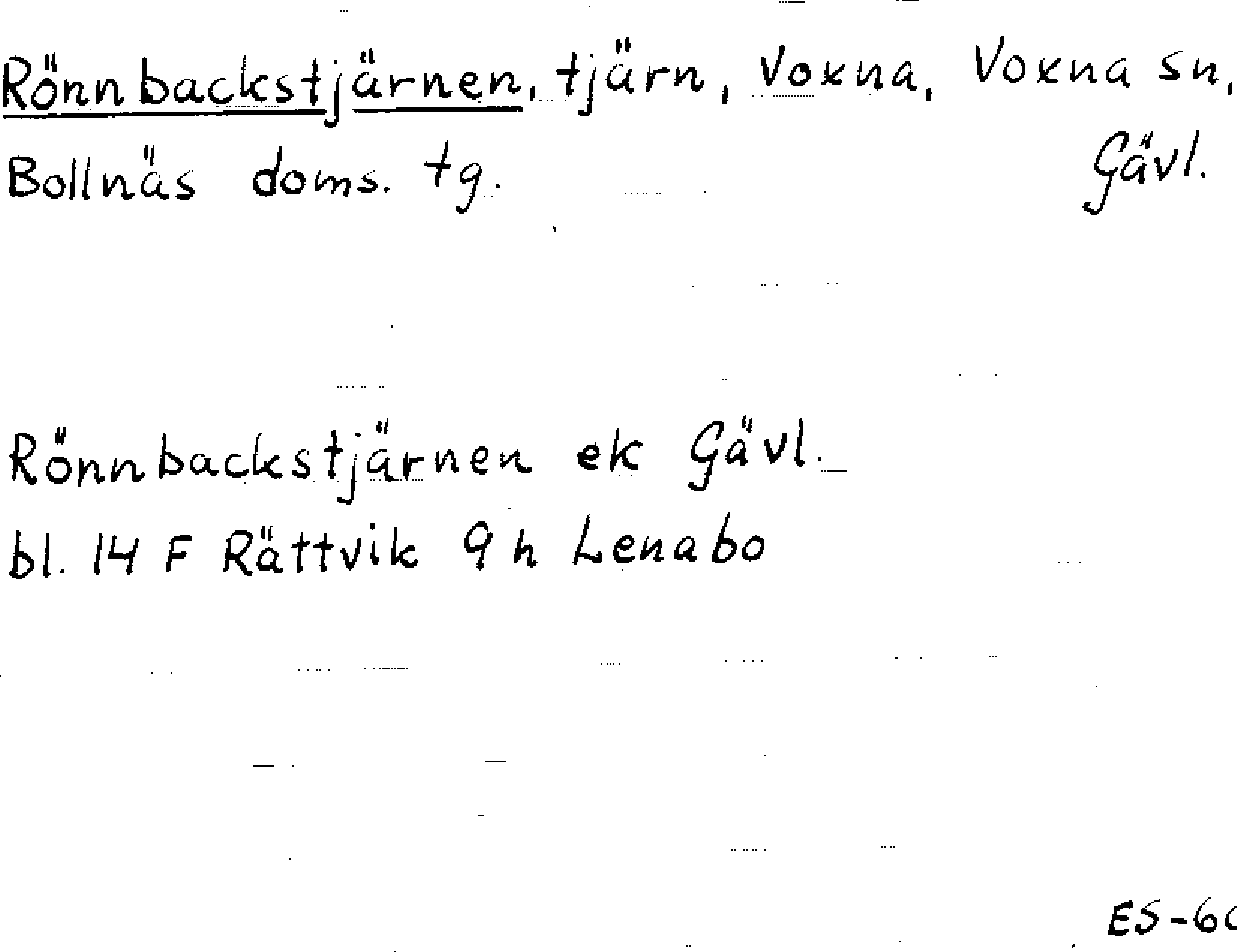 Rönnbackstjärnen, tjärn, Voxna, Voxna sn,
Bollnäs doms. tg. Gävl.
Rönnbackstjärnen ek Gävl.
bl. 14 F Rättvik 9 h Lenabo